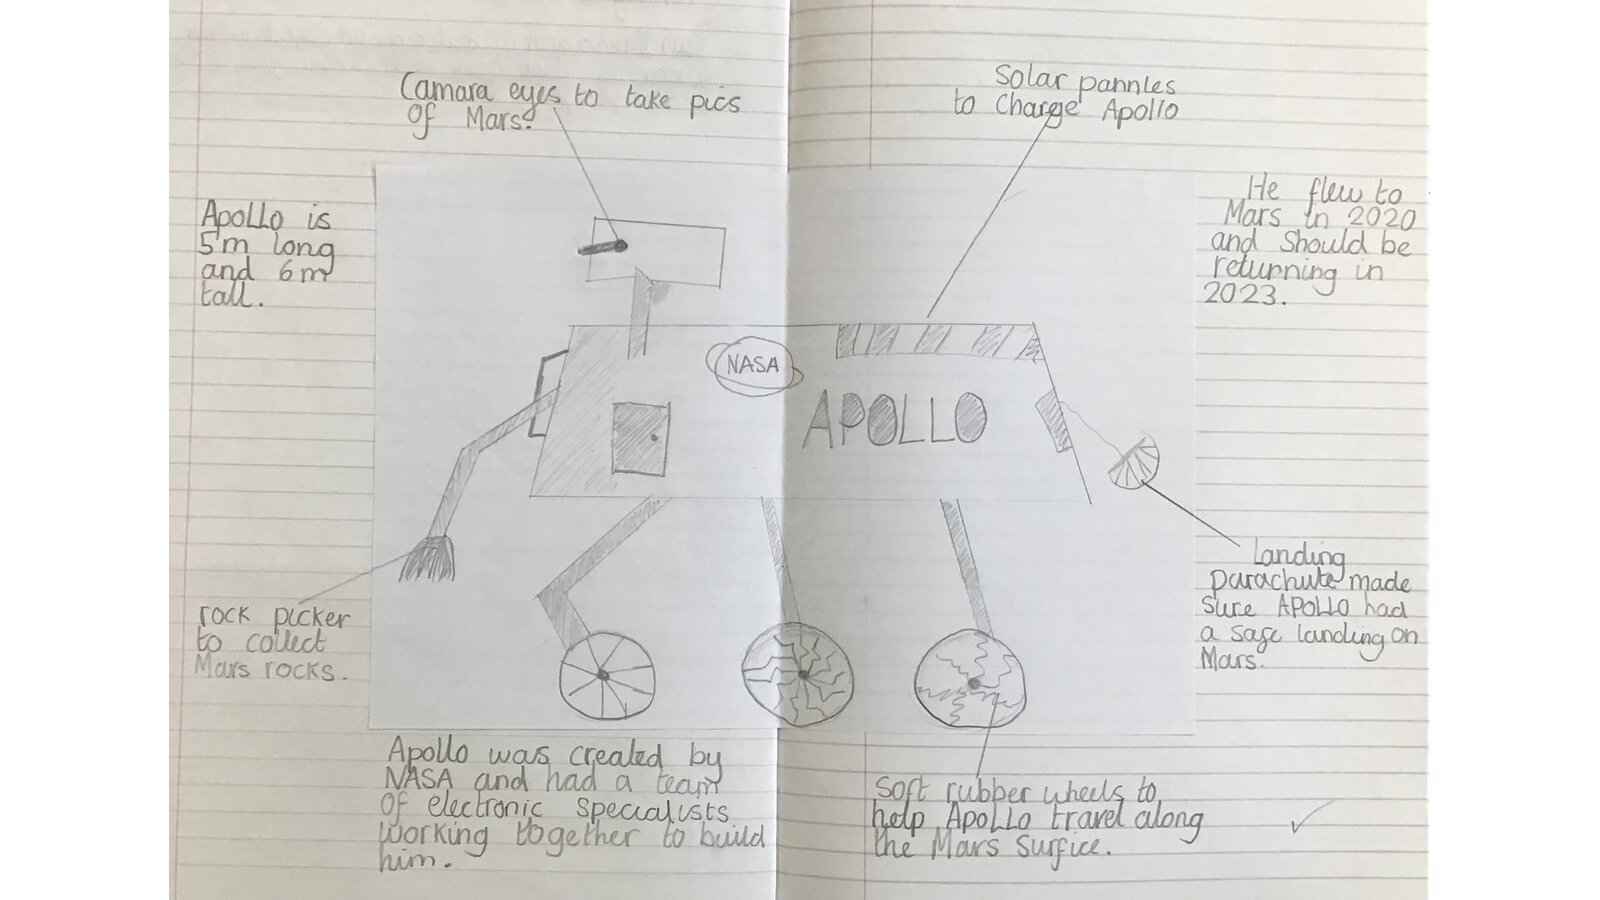 Camara eyes to take pics
of Mars.
Solar pannles
to Charge Apollo
Apollo is
5m long
and 6m
tall.
He flew to
Mars in 2020
and Should be
returning in
2023.
NASA
APOLLO
rock picker
to collect
Mars rocks.
Landing
parachute made
sure APOLLO had
a safe landing on
Mars.
Apollo was created by
NASA and had a team
of electronic specialists
working together to build
him.
Soft rubber wheels to
help Apollo travel along
the Mars Surfice.